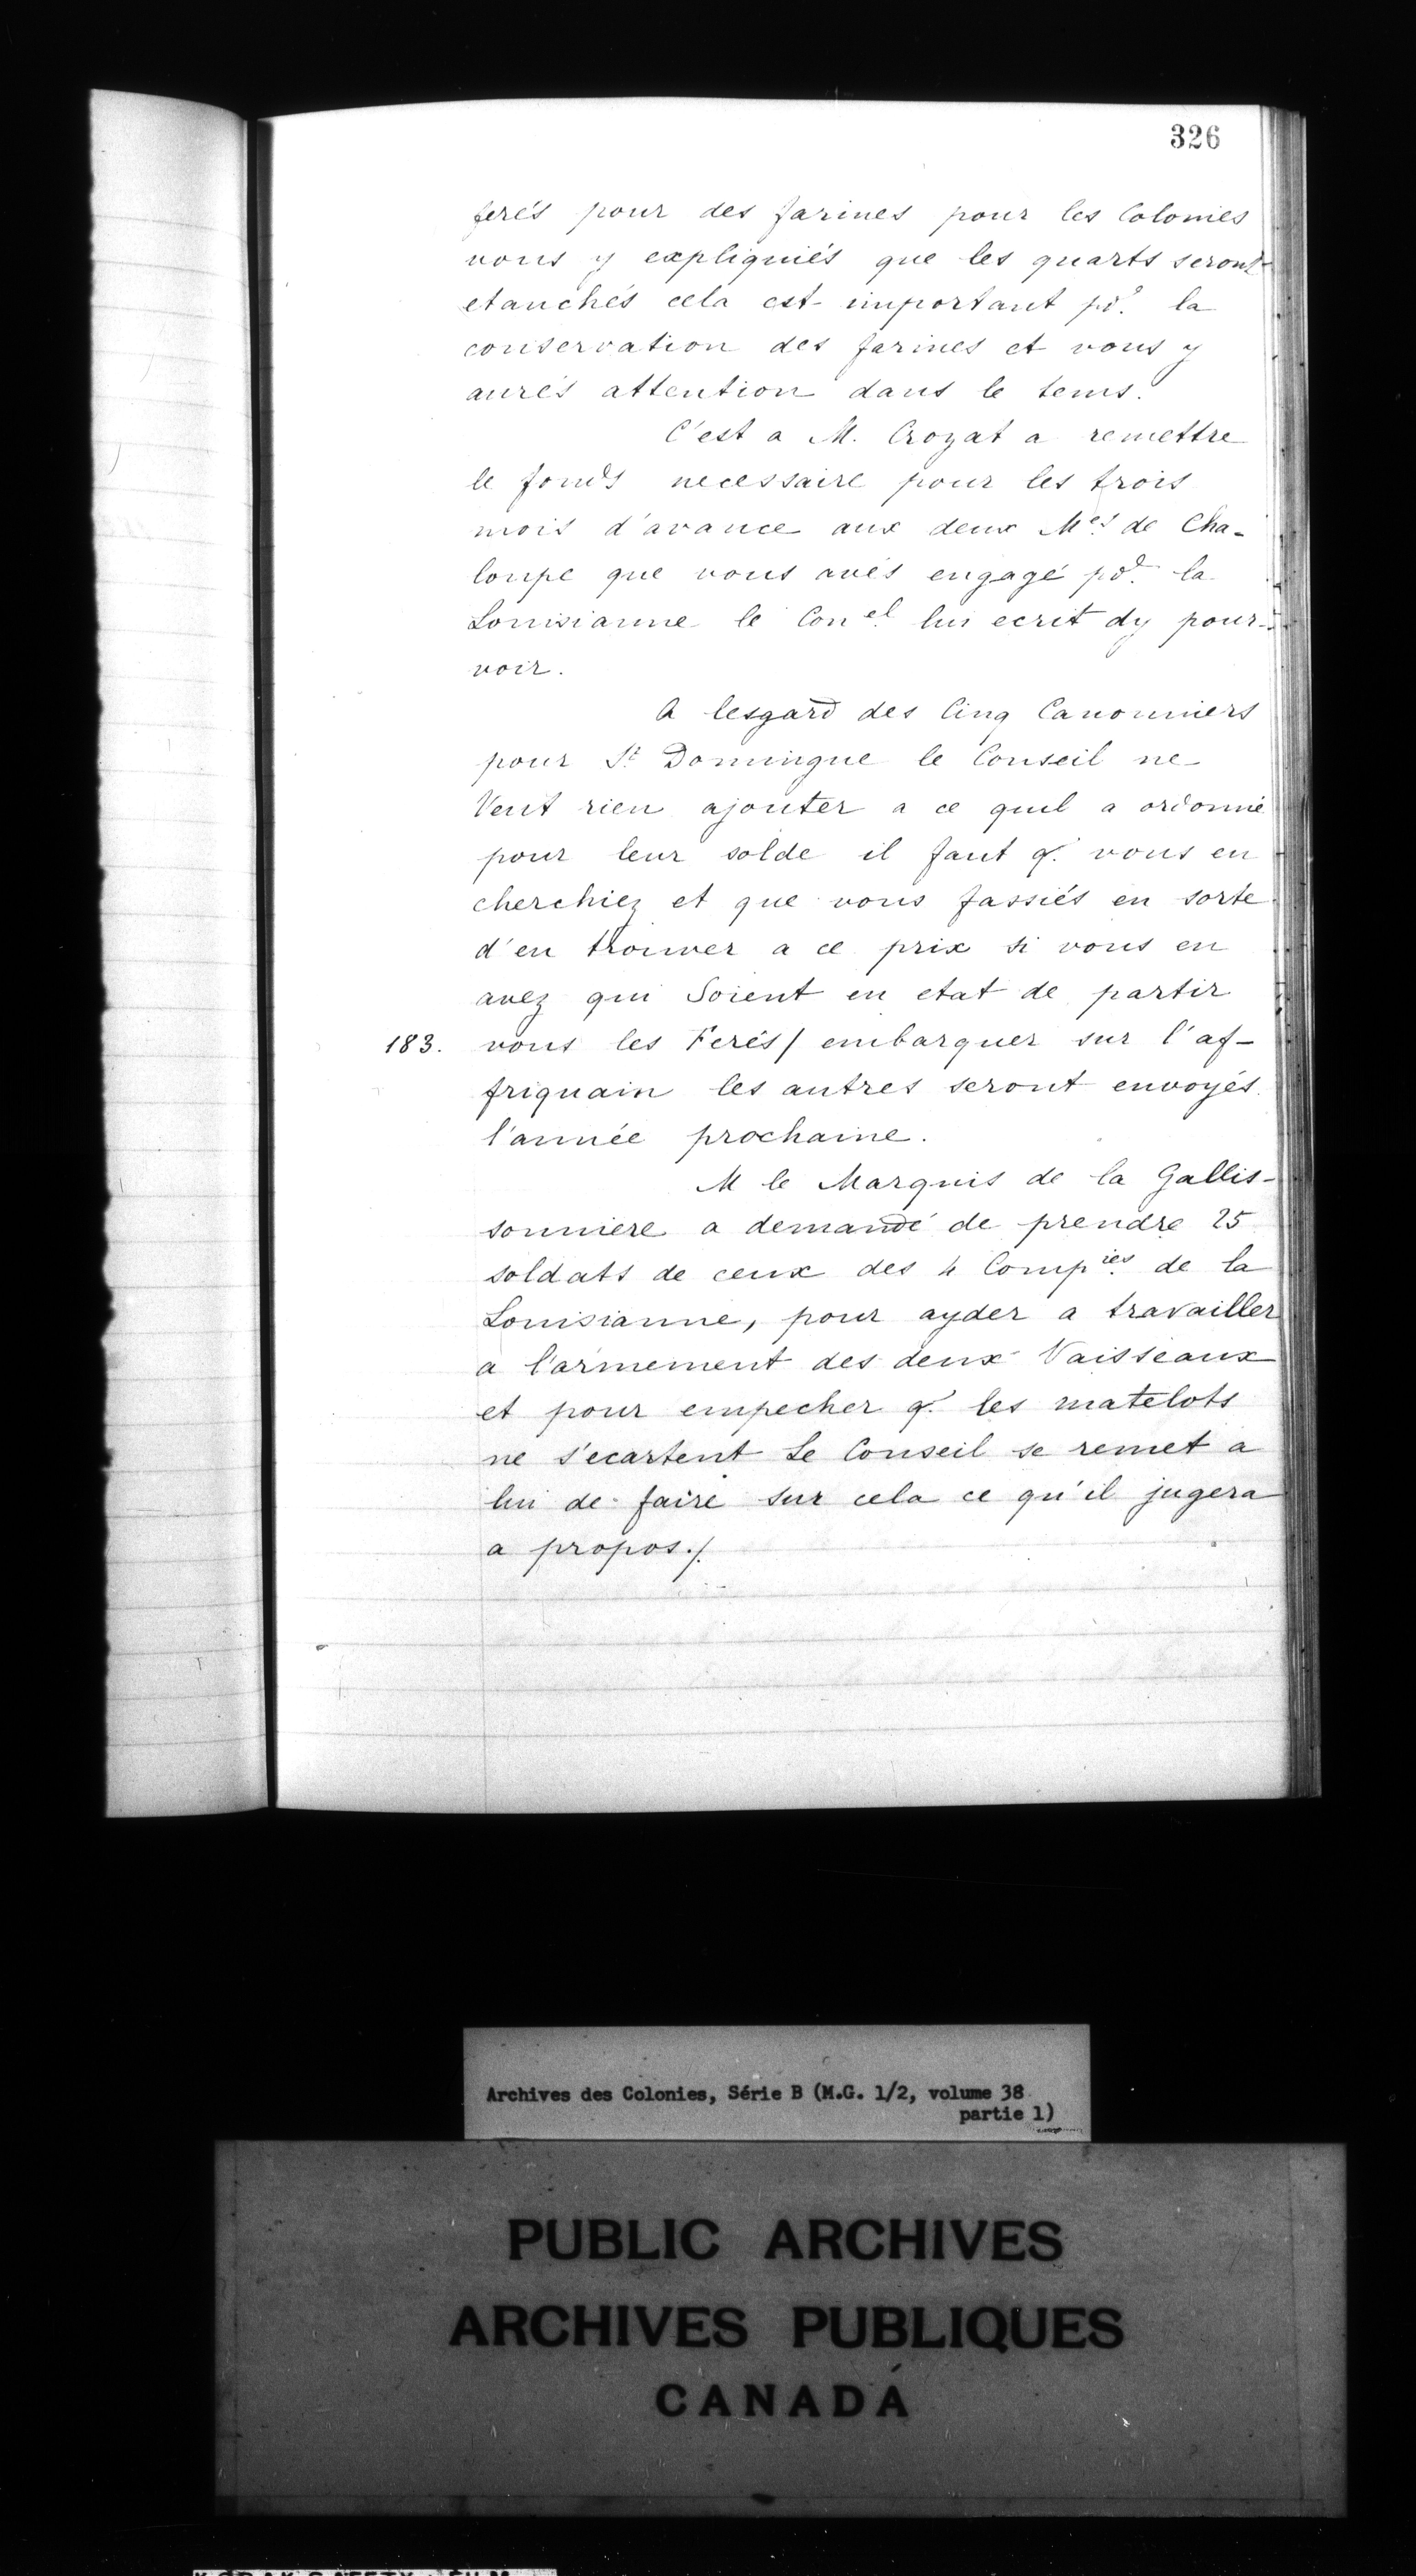 326
ferés pour des farines pour les Colonies
vous y expliquiés que les quarts seront
etanchés cela est important po.r la
conservation des farines et vous y
aurés attention dans le tems.
C'est a M. Crozat a remettre
le fonds necessaire pour les trois
mois d'avance aux deux M.es de Cha-
loupe que vous avés engagé po.r la
Louisianne le Con.el lui ecrit dy pour-
voir.
A lesgard des Cinq Canonniers
pour S.t Domingue le Conseil ne
Veut rien ajouter a ce quil a ordonné
pour leur solde il faut q. vous en
cherchiez et que vous fassiés en sorte
d'en trouver a ce prix si vous en
avez qui Soient en etat de partir
183. vous les Ferés/ embarquer sur l'af-
friquain les autres seront envoyés
l'année prochaine.
M le Marquis de la Gallis-
sonniere a demandé de prendre 25
soldats de ceux des 4 Comp.ies de la
Louisianne, pour ayder a travailler
a l'armement des deux Vaisseaux
et pour empecher q. les matelots
ne s'ecartent Le Conseil se remet a
lui de faire sur cela ce qu'il jugera
a propos./.
Archives des Colonies, Série B (M.G. 1/2, volume 38
partie 1)
PUBLIC ARCHIVES
ARCHIVES PUBLIQUES
CANADA